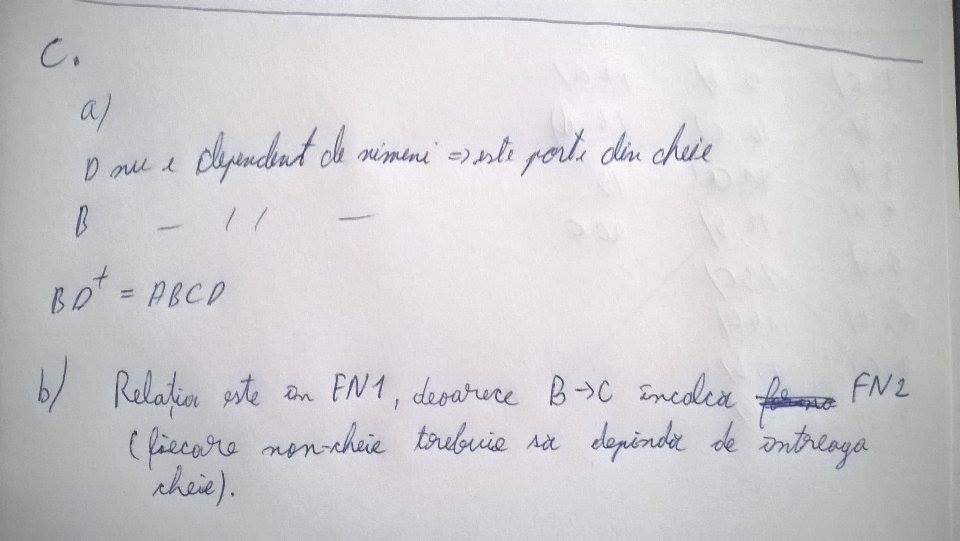 C.
a)
D nu e dependent de nimeni => este parte din cheie
B — // —
BD⁺ = ABCD
b) Relația este în FN1, deoarece B->C încalca FN2
(fiecare non-cheie trebuie sa depinda de intreaga
cheie).